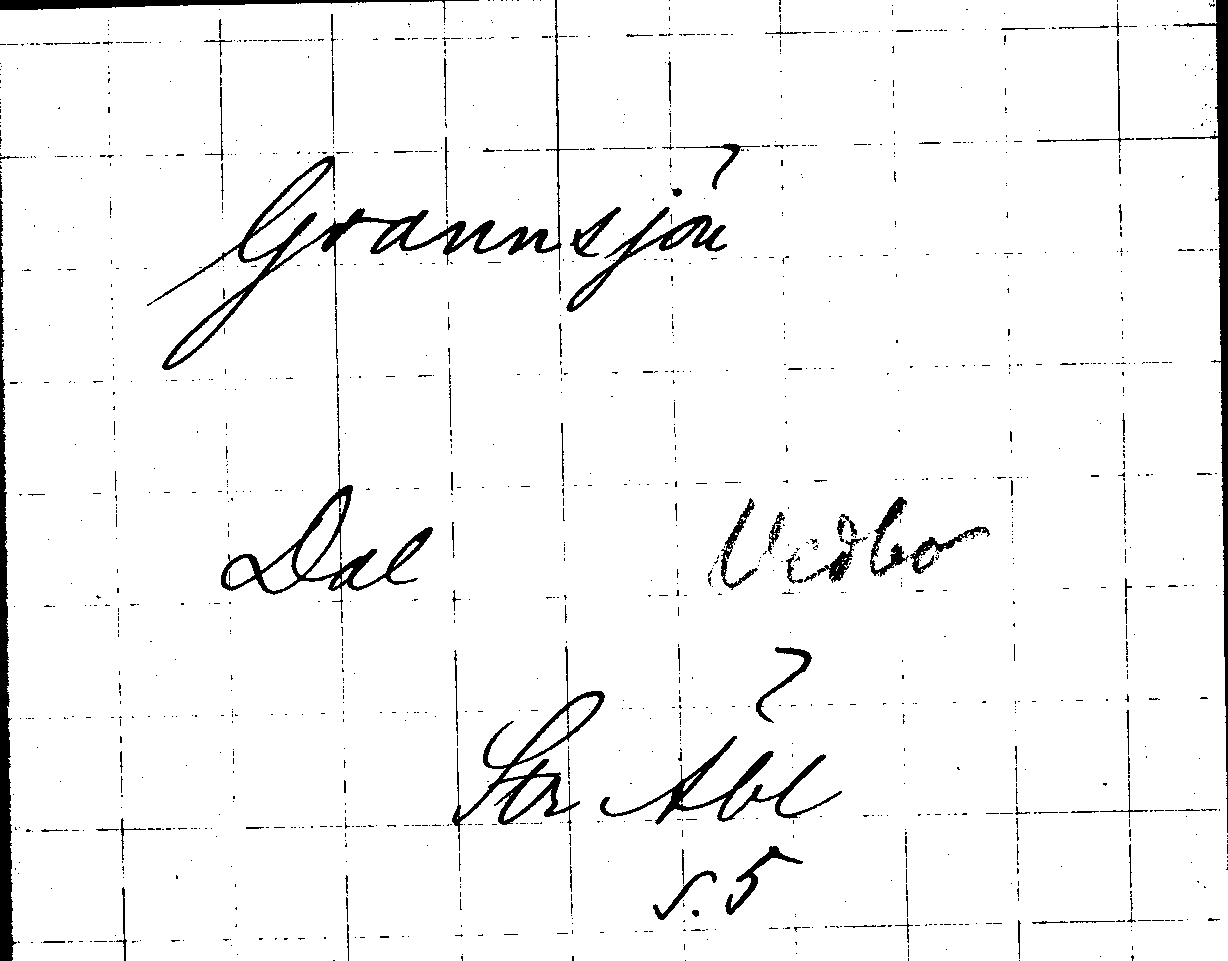 Grannsjön
Dal Vedbo
Str Äbl
s. 5